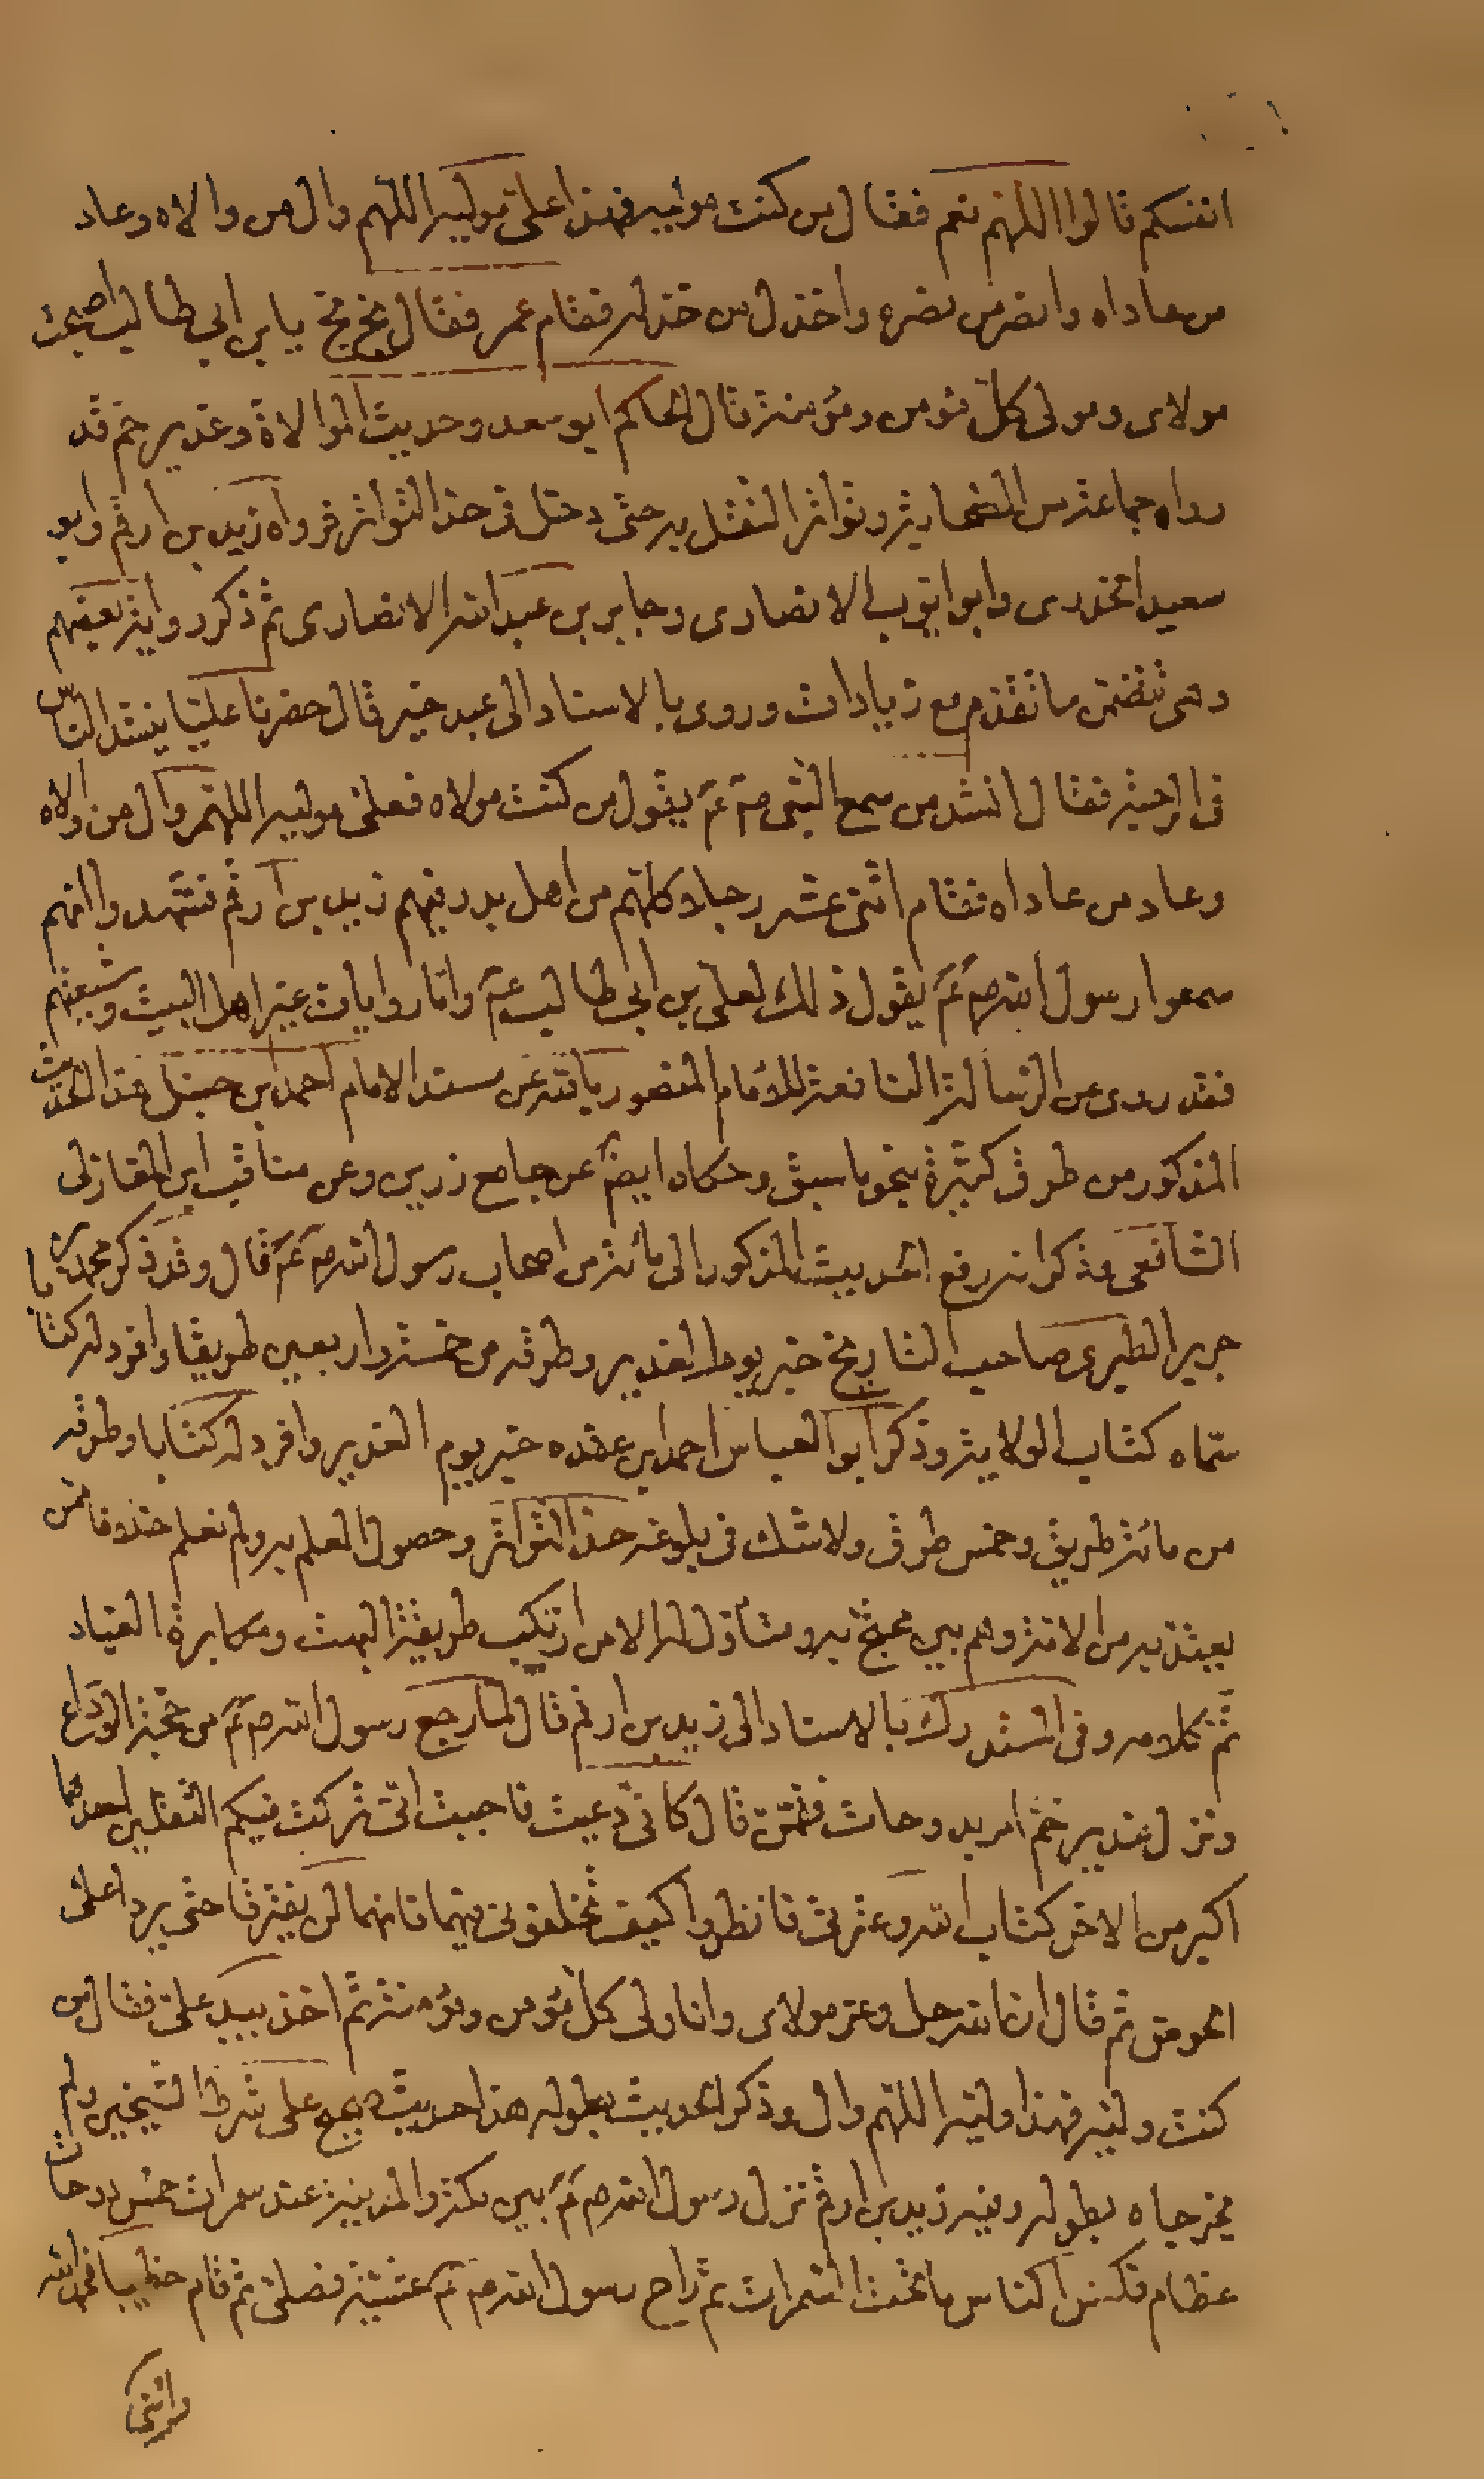 انفسكم قالوا اللهم نعم فقال من كنت موليه فهذا علي موليه اللهم وال من والاه وعاد
من عاداه وانصر من نصره واخذل من خذله فقام عمر فقال بخ بخ يا بن ابي طالب اصبحت
مولاي ومولى كل مؤمن ومؤمنة قال الحاكم ابو سعد وحديث الموالاة وغدير خم قد
رواه جماعة من الصحابة وتواتر النقل به حتى دخل في حد التواتر فرواه زيد بن ارقم وابو
سعيد الخدري وابو ايوب الانصاري وجابر بن عبد الله الانصاري ثم ذكر رواية بعضهم
وهي تتضمن ما تقدم مع زيادات وروى بالاسناد الى عبد خير قال حضرنا عليا ينشد الناس
في الرحبة فقال انشد من سمع النبي صم عم يقول من كنت مولاه فعلي موليه اللهم وال من والاه
وعاد من عاداه فقام اثنى عشر رجلا كلهم من اهل بدر منهم زيد بن ارقم فشهدوا انهم
سمعوا رسول الله صم عم يقول ذلك لعلي بن ابي طالب عم واما روايات غير اهل البيت وشيعتهم
فقد روى عن الرسالة النافعة للامام المنصور بالله عن مسند الامام احمد بن حنبل هذا الحديث
المذكور من طرق كثيرة بنحو ما سبق وحكاه ايضا عن جامع رزين وعن مناقب ابن المغازلي
الشافعي وذكر انه رفع الحديث المذكور الى مائة من اصحاب رسول الله صم عم قال وقد ذكر محمد بن
جرير الطبري صاحب التاريخ خبر يوم الغدير وطرقه من خمسة واربعين طريقا وافرد له كتابا
سماه كتاب الولاية وذكر ابو العباس احمد بن عقده خبر يوم الغدير وافرد له كتابا وطرقه
من مائة طريق وخمس طرق ولا شك في بلوغه حد التواتر وحصول العلم به ولم نعلم خلافا ممن
يعتد به من الامة وهم بين محتج به ومتاول له الا من ارتكب طريقة البهت ومكابرة العياد
تم كلامه وفي المستدرك بالاسناد الى زيد بن ارقم قال لما رجع رسول الله صم عم من حجة الوداع
ونزل غدير خم امر بدوحات فقممن قال كاني دعيت فاجبت اني تركت فيكم الثقلين احدهما
اكبر من الاخر كتاب الله وعترتي فانظروا كيف تخلفوني فيهما فانهما لن يفترقا حتى يردا علي
الحوض ثم قال ان الله جل وعز مولاي وانا ولي كل مؤمن ومؤمنة ثم اخذ بيد علي فقال من
كنت وليه فهذا وليه اللهم وال وذكر الحديث بطوله هذا حديث صحيح على شرط الشيخين ولم
يخرجاه بطوله وفيه زيد بن ارقم نزل رسول الله صم عم بين مكة والمدينة عند سمرات خمس دوحات
عظام فكنس الناس ما تحت السمرات ثم راح رسول الله صم عم عشية فصلى ثم قام خطيبا فحمد الله
واثنى